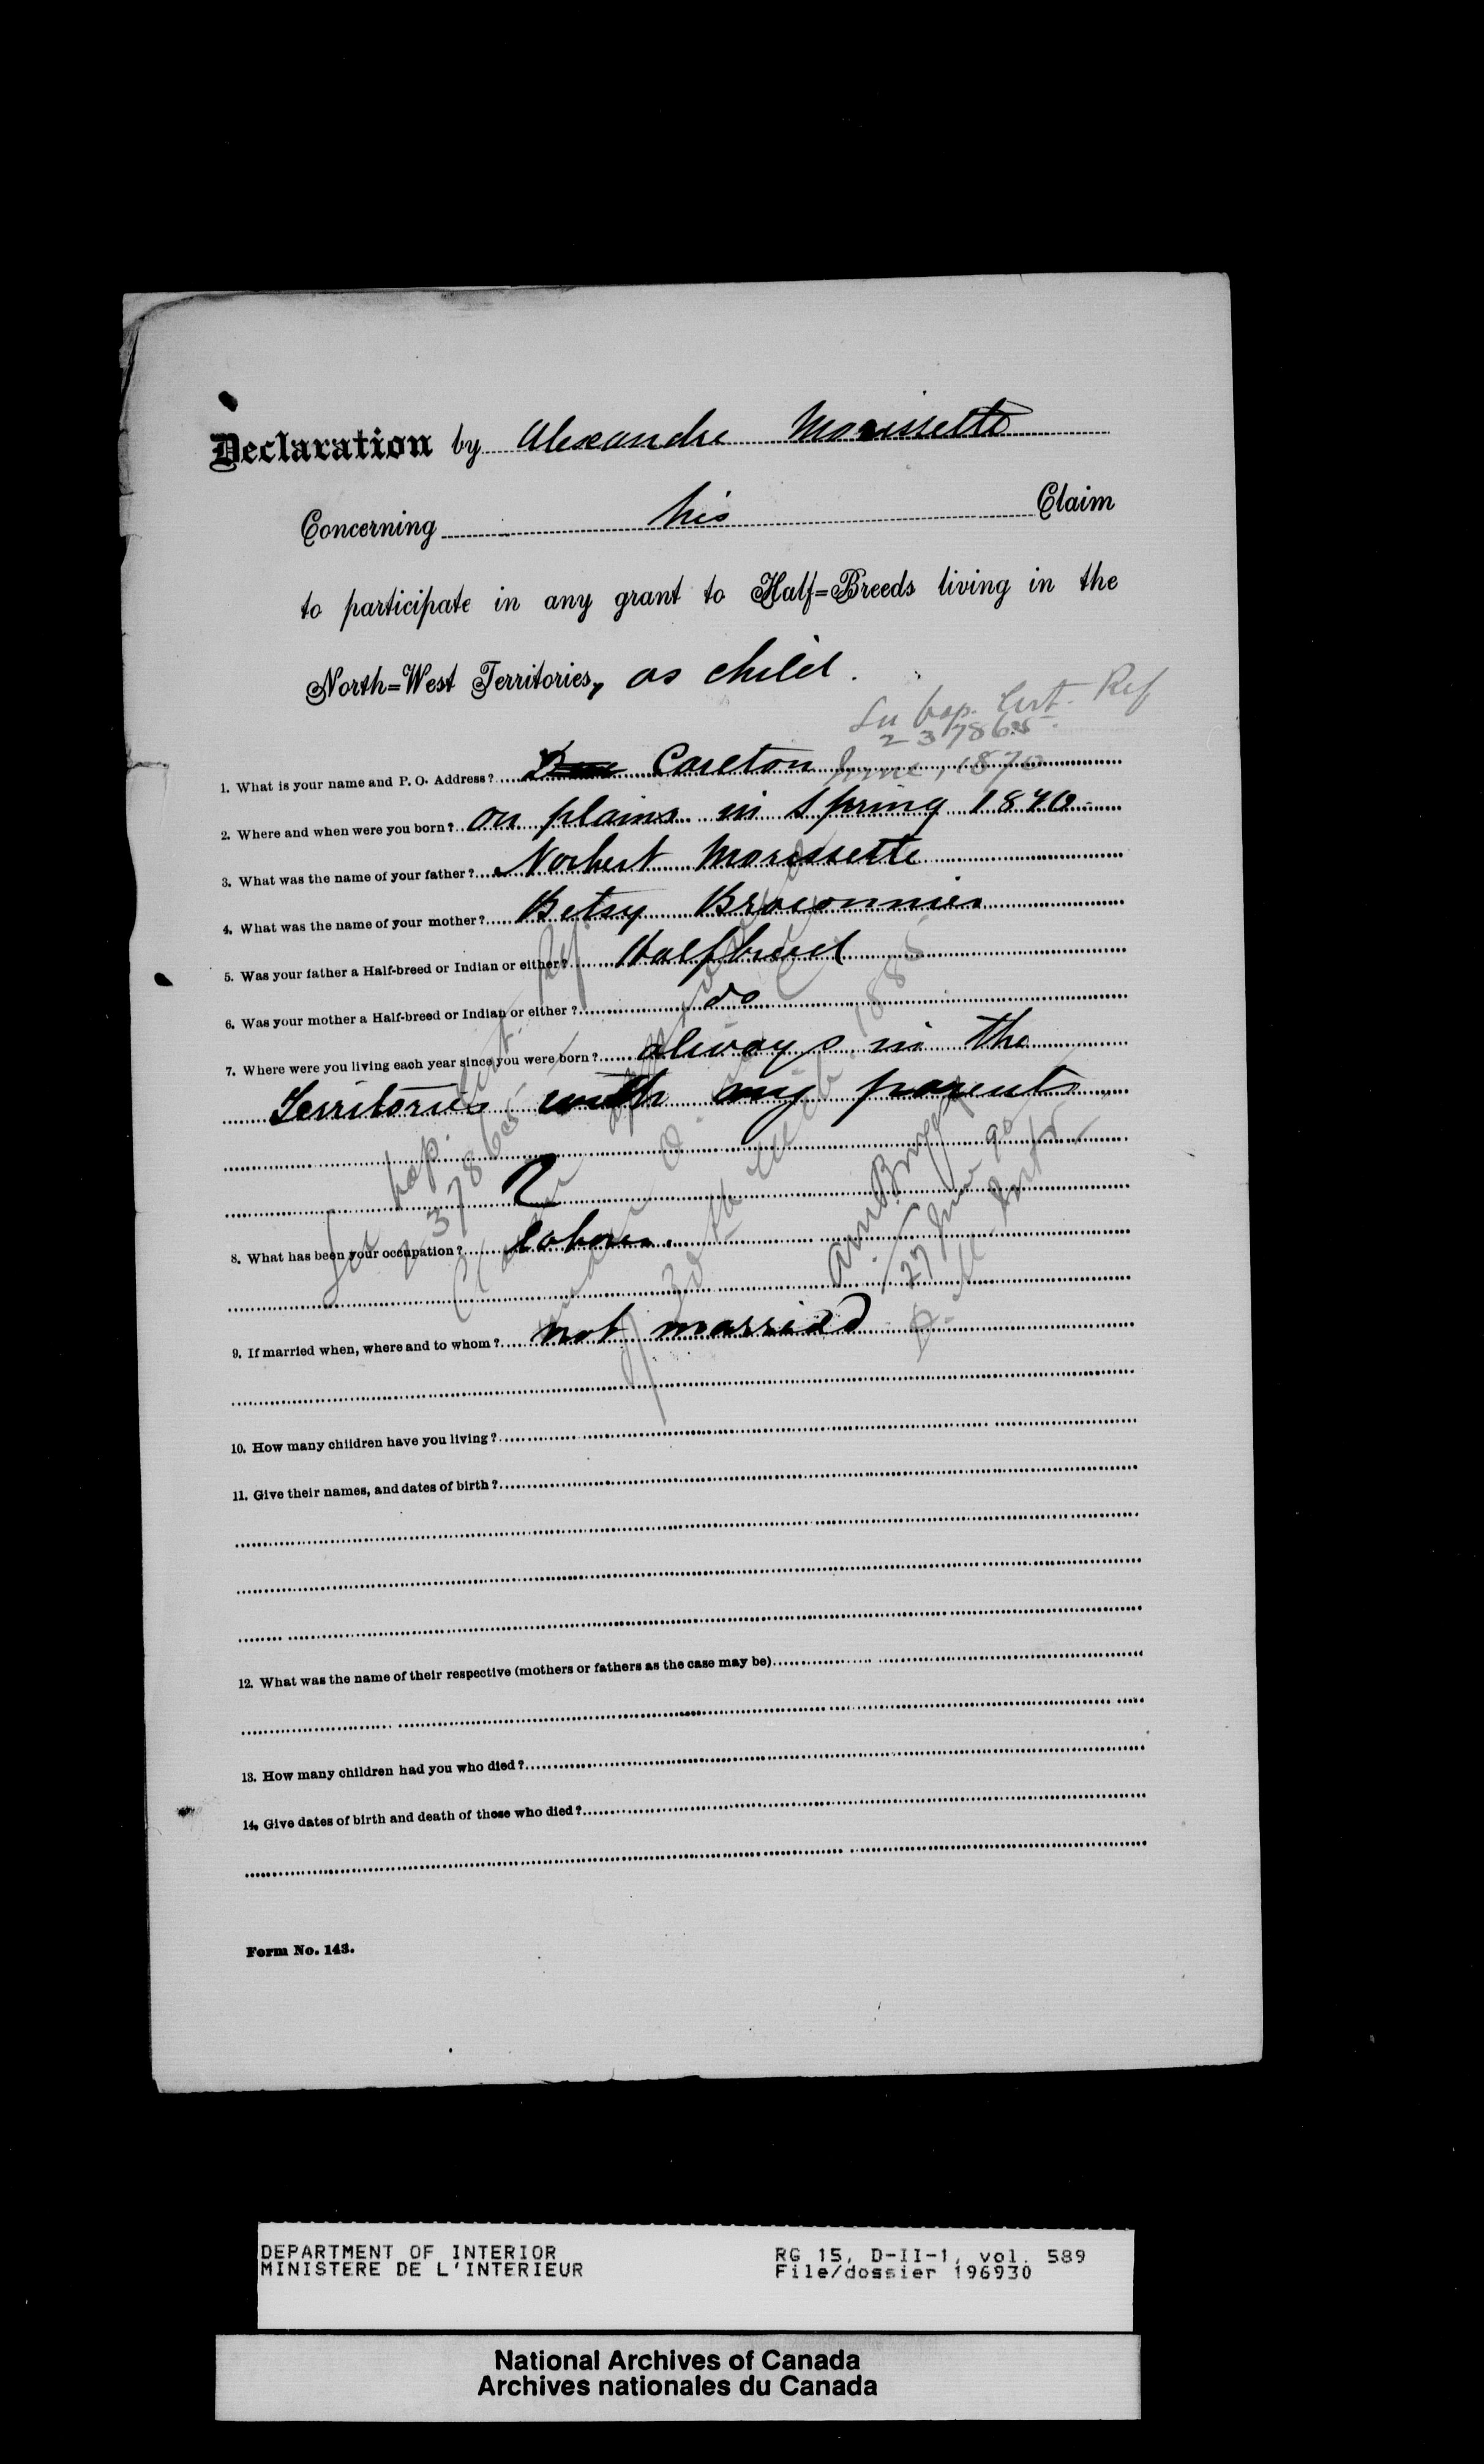 Declaration by Alexandre Morissette
Concerning his Claim
to participate in any grant to Half=Breeds living in the
North=West Territories, as child.
See bap. Cert. Ref
237865
June, 1870
1. What is your name and P. O. Address? Carlton
2. Where and when were you born? on plains in spring 1870
3. What was the name of your father? Norbert Morissette
4. What was the name of your mother? Betsy Braconnier
5. Was your father a Half-breed or Indian or either? Halfbreed
6. Was your mother a Half-breed or Indian or either? do
7. Where were you living each year since you were born? always in the
Territories with my parents
See bap. Cert. Ref
237865
8. What has been your occupation? labour.
27 June 90
9. If married when, where and to whom? not married
10. How many children have you living?
11. Give their names, and dates of birth?
12. What was the name of their respective (mothers or fathers as the case may be)
13. How many children had you who died?
14. Give dates of birth and death of those who died?
Form No. 143.
DEPARTMENT OF INTERIOR RG 15, D-II-1, vol. 589
MINISTERE DE L'INTERIEUR File/dossier 196930
National Archives of Canada
Archives nationales du Canada